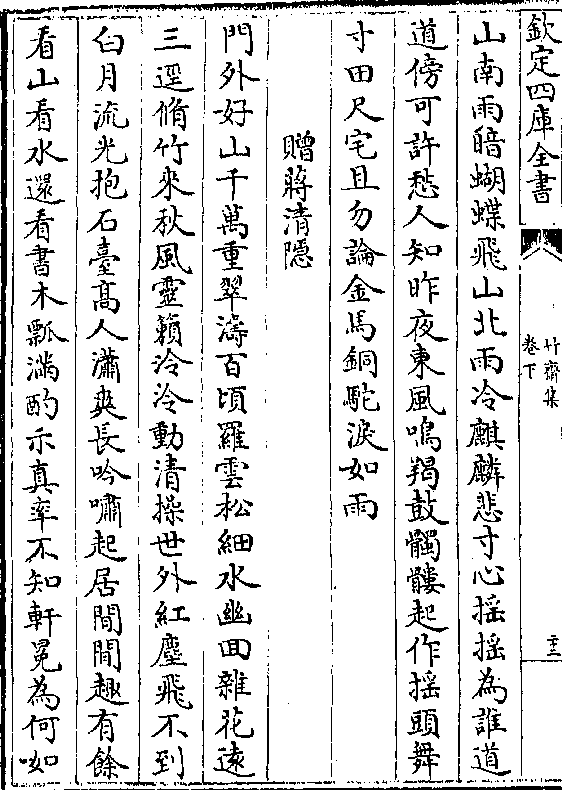 欽定四庫全書
竹齋集
卷下
二十三
山南雨暗蝴蝶飛山北雨冷麒麟悲寸心搖搖為誰道
道傍可許愁人知昨夜東風鳴羯鼓髑髏起作搖頭舞
寸田尺宅且勿論金馬銅駝淚如雨
贈蔣清隱
門外好山千萬重翠濤百頃羅雲松細水幽回雜花逺
三逕脩竹來秋風靈籟泠泠動清操世外紅塵飛不到
白月流光抱石臺髙人瀟爽長吟嘯起居閒閒趣有餘
看山看水還看書木瓢滿酌示真率不知軒冕為何如